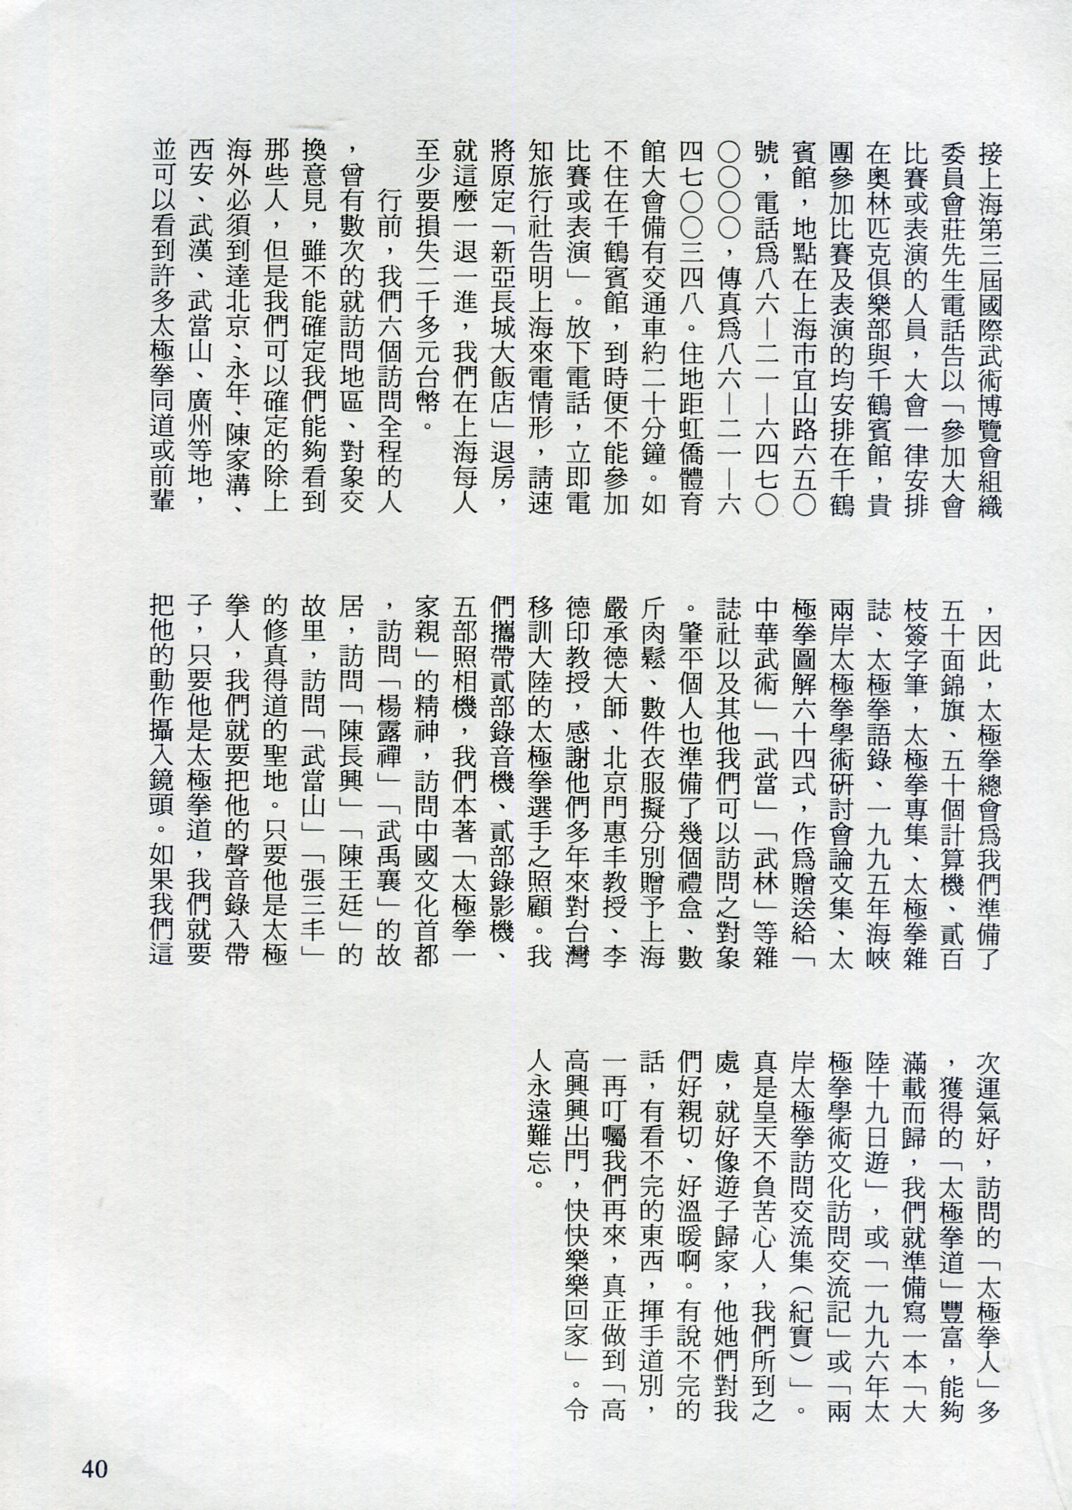 接上海第三屆國際武術博覽會組織
委員會莊先生電話告以「參加大會
比賽或表演的人員，大會一律安排
在奧林匹克俱樂部與千鶴賓館，貴
團參加比賽及表演的均安排在千鶴
賓館，地點在上海市宜山路六五〇
號，電話爲八六－二一－六四七〇
〇〇〇〇，傳真爲八六－二一－六
四七〇〇三四八。住地距虹僑體育
館大會備有交通車約二十分鐘。如
不住在千鶴賓館，到時便不能參加
比賽或表演」。放下電話，立即電
知旅行社告明上海來電情形，請速
將原定「新亞長城大飯店」退房，
就這麼一退一進，我們在上海每人
至少要損失二千多元台幣。
行前，我們六個訪問全程的人
，曾有數次的就訪問地區、對象交
換意見，雖不能確定我們能夠看到
那些人，但是我們可以確定的除上
海外必須到達北京、永年、陳家溝、
西安、武漢、武當山、廣州等地，
並可以看到許多太極拳同道或前輩
，因此，太極拳總會爲我們準備了
五十面錦旗、五十個計算機、貳百
枝簽字筆，太極拳專集、太極拳雜
誌、太極拳語錄、一九九五年海峽
兩岸太極拳學術研討會論文集、太
極拳圖解六十四式，作爲贈送給「
中華武術」「武當」「武林」等雜
誌社以及其他我們可以訪問之對象
。肇平個人也準備了幾個禮盒、數
斤肉鬆、數件衣服擬分別贈予上海
嚴承德大師、北京門惠丰教授、李
德印教授，感謝他們多年來對台灣
移訓大陸的太極拳選手之照顧。我
們攜帶貳部錄音機、貳部錄影機、
五部照相機，我們本著「太極拳一
家親」的精神，訪問中國文化首都
，訪問「楊露禪」「武禹襄」的故
居，訪問「陳長興」「陳王廷」的
故里，訪問「武當山」「張三丰」
的修真得道的聖地。只要他是太極
拳人，我們就要把他的聲音錄入帶
子，只要他是太極拳道，我們就要
把他的動作攝入鏡頭。如果我們這
次運氣好，訪問的「太極拳人」多
，獲得的「太極拳道」豐富，能夠
滿載而歸，我們就準備寫一本「大
陸十九日遊」，或「一九九六年太
極拳學術文化訪問交流記」或「兩
岸太極拳訪問交流集（紀實）」。
真是皇天不負苦心人，我們所到之
處，就好像遊子歸家，他她們對我
們好親切、好溫暖啊。有說不完的
話，有看不完的東西，揮手道別，
一再叮囑我們再來，真正做到「高
高興興出門，快快樂樂回家」。令
人永遠難忘。
40